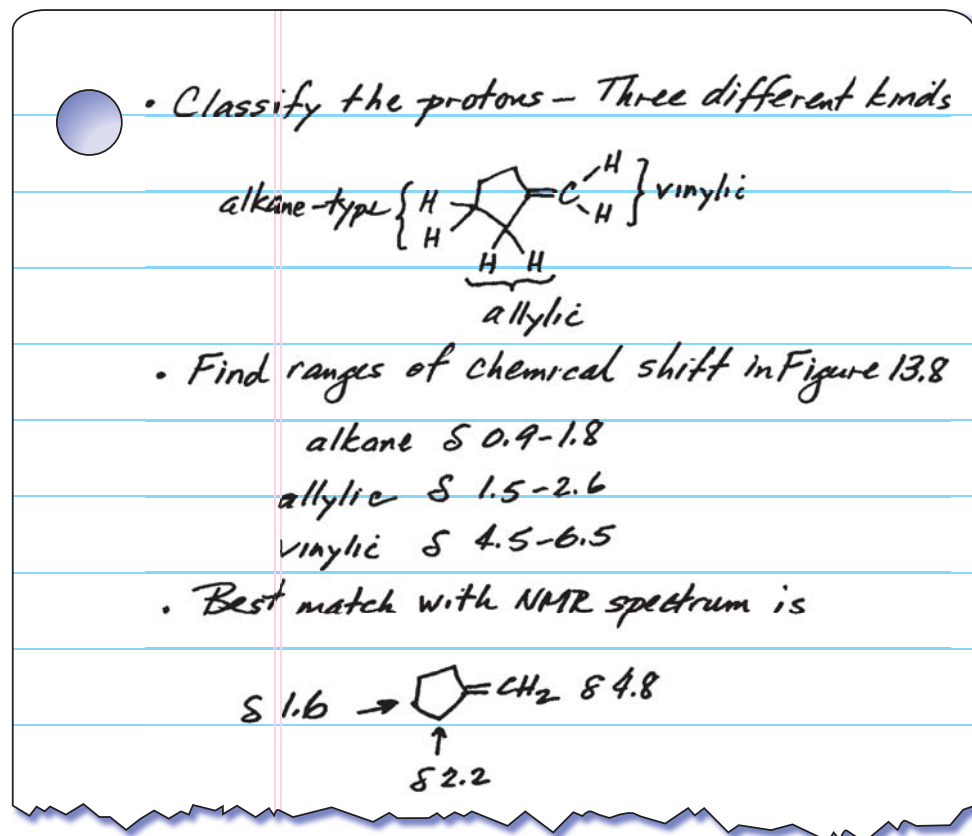 • Classify the protons – Three different kinds
alkane-type { H H
C H H } vinylic
H H
allylic
• Find ranges of chemical shift in Figure 13.8
alkane δ 0.9-1.8
allylic δ 1.5-2.6
vinylic δ 4.5-6.5
• Best match with NMR spectrum is
δ 1.6 → =CH₂ δ 4.8
↑
δ 2.2